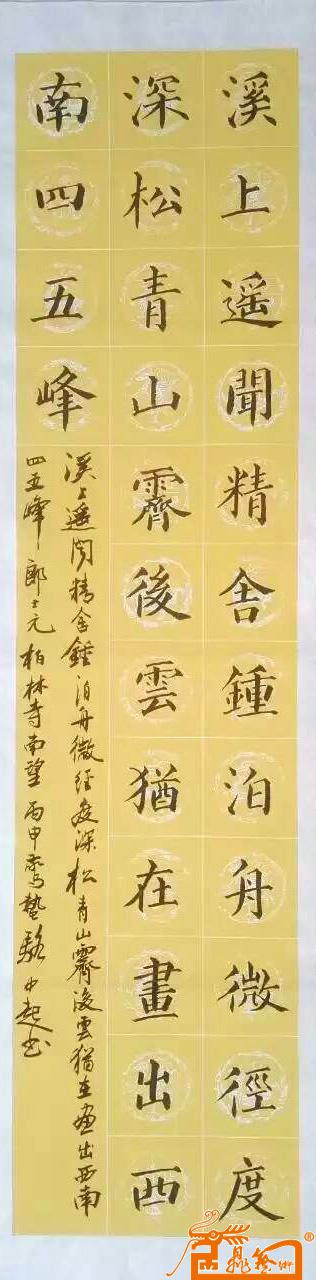 溪上遥聞精舍鍾泊舟微徑度
深松青山霽後雲猶在畫出西
南四五峰
溪上遥闻精舍鍾泊舟微经度深松青山霽後雲猶在畫出西南
四五峰郎士元柏林寺南望丙申驚蟄駱中起书